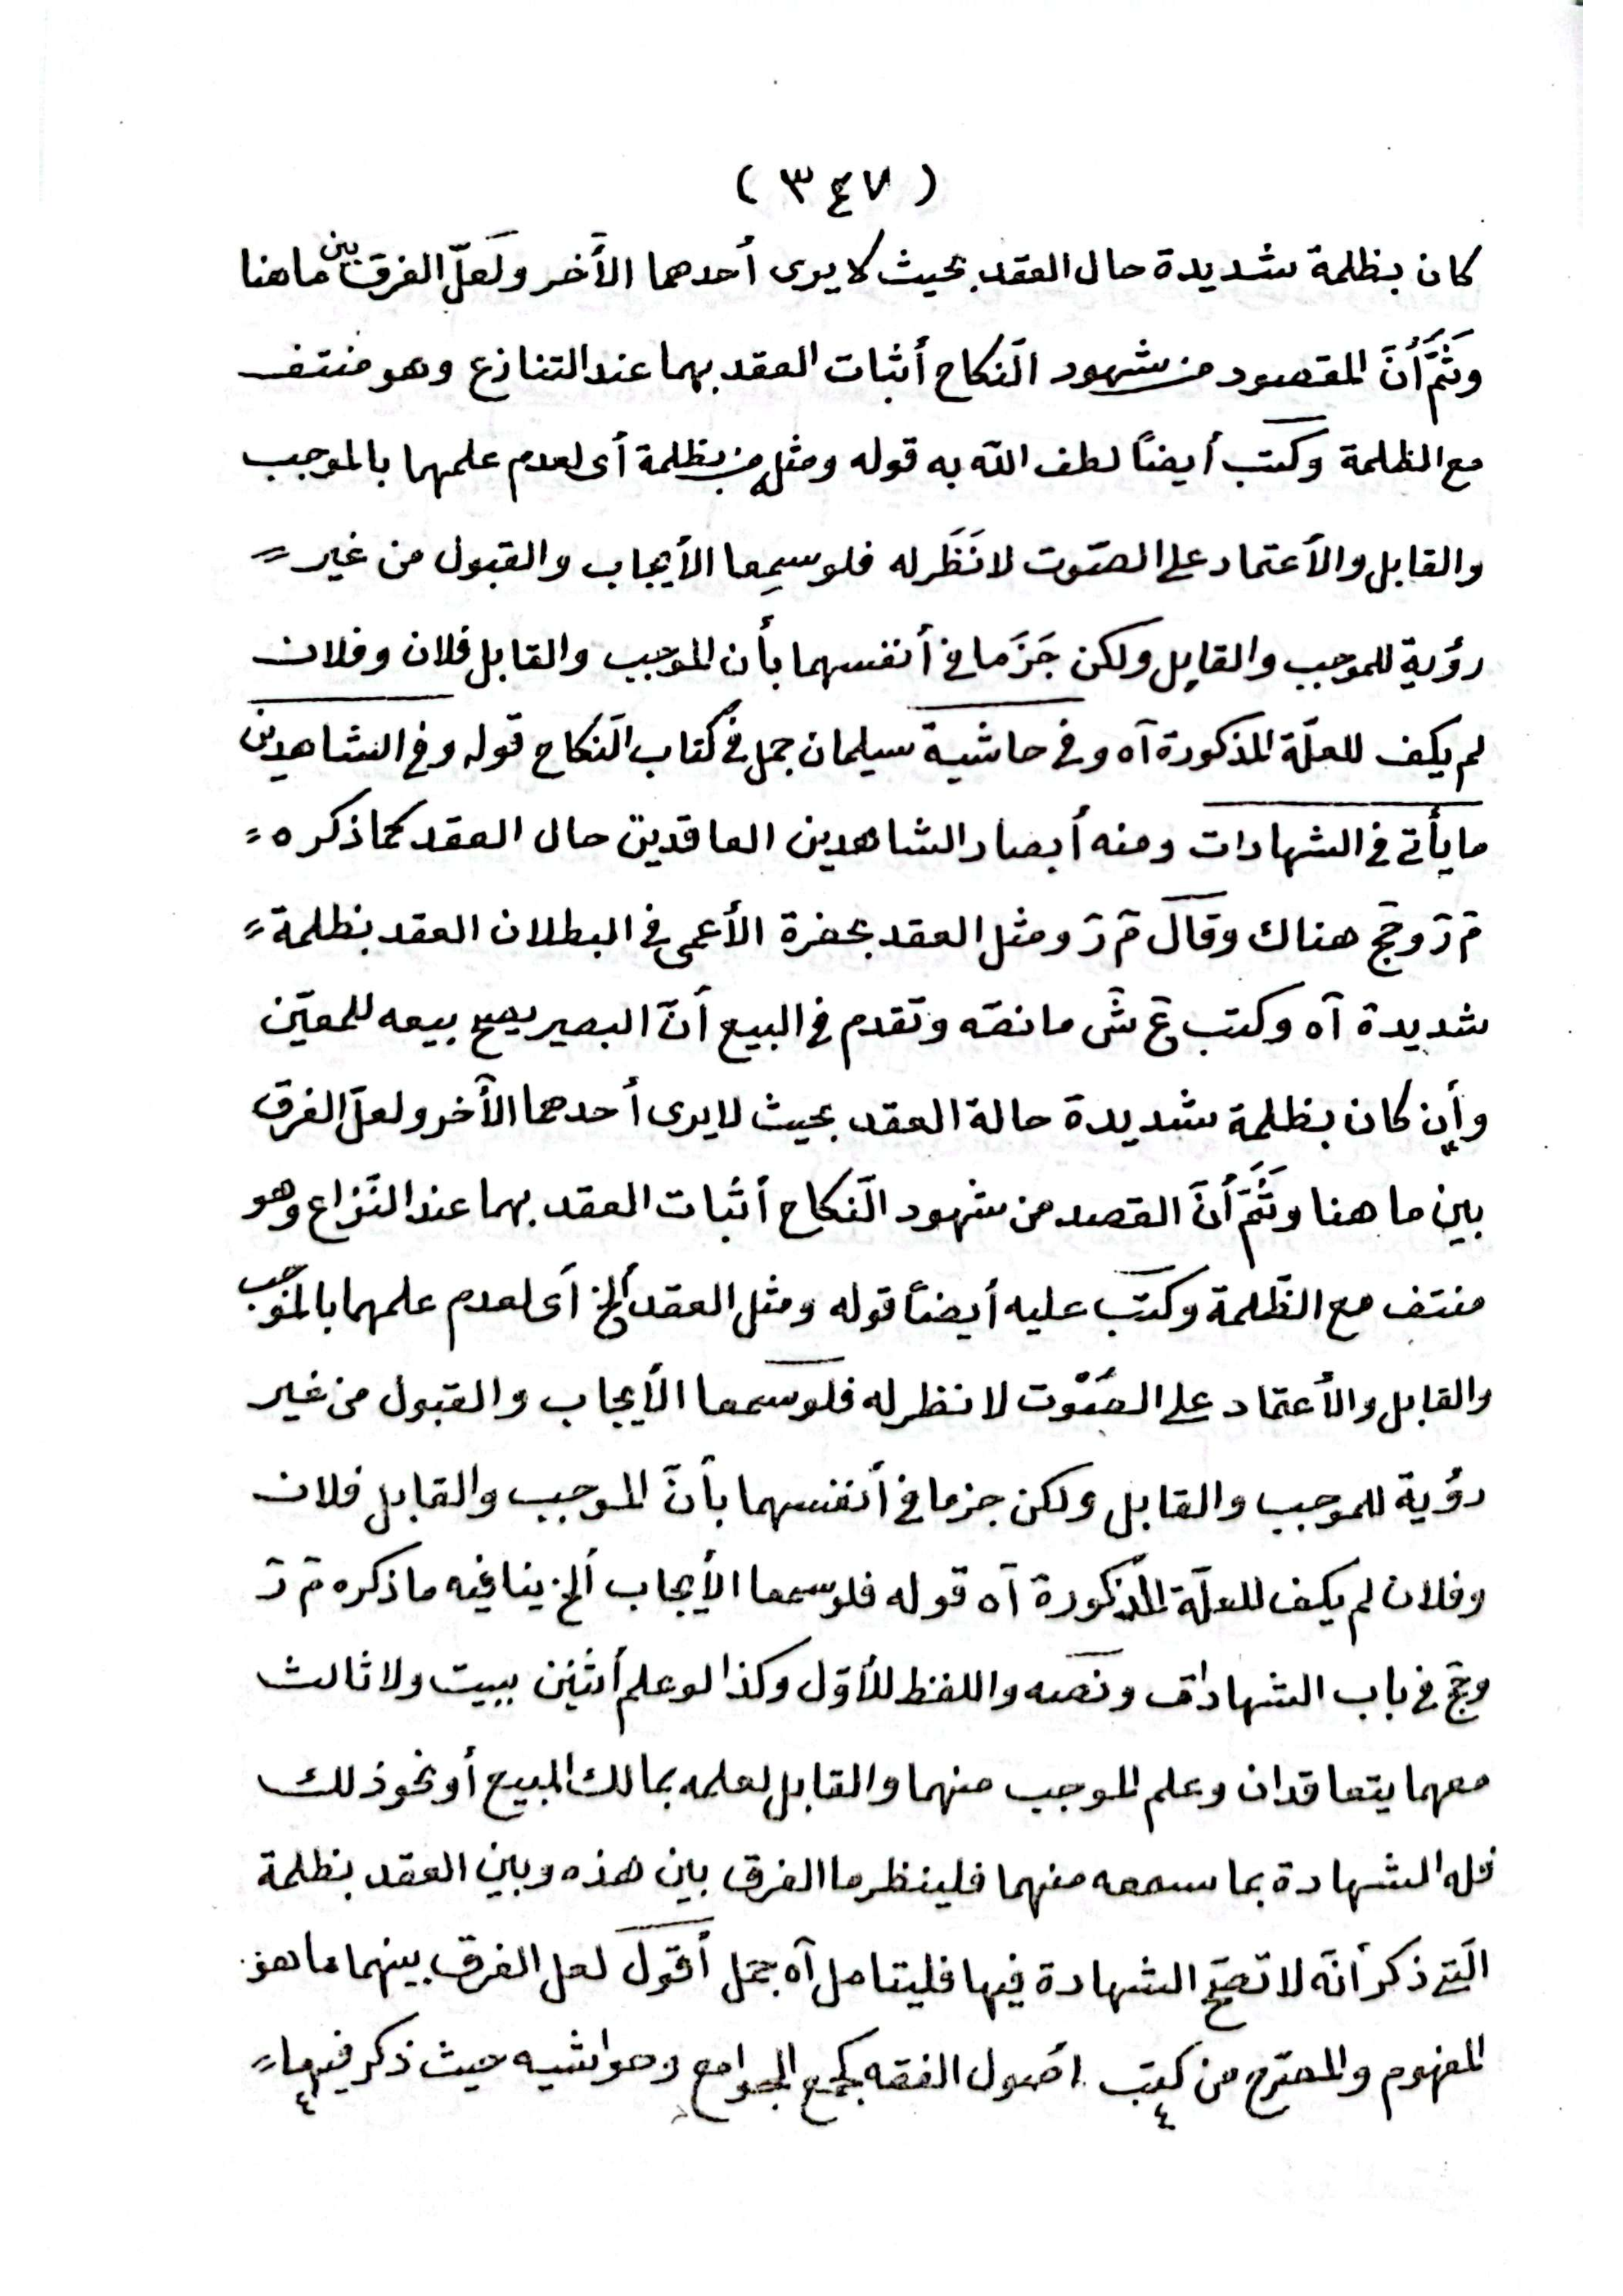 ( ٣٤٧ )
كان بظلمة شديدة حال العقد بحيث لا يرى أحدهما الآخر ولَعلّ الفرق بين ما هنا
وثَمَّ أَنَّ المقصود من شهود النّكاح أثبات العقد بهما عند التنازع وهو منتف
مع الظلمة وكتب أيضاً لطف الله به قوله ومثله من بظلمة أى لعدم علمهما بالموجب
والقابل والأعتماد على الصّوت لا نَظَر له فلو سمِعا الأيجاب والقبول من غير =
رؤية للموجب والقابِل ولكن جَزَما فى أنفسهما بأن الموجب والقابل فلان وفلان
لم يكف للعلّة المذكورة آه وفى حاشية سيلمان جمل فى كتاب النّكاح قوله وفى الشاهدين
ما يأتى فى الشهادات ومنه أبصار الشاهدين العاقدين حال العقد كما ذكره =
م ر وحج هناك وقال م ر ومثل العقد بحضرة الأعمى فى البطلان العقد بظلمة =
شديدة آه وكتب ع ش ما نصّه وتقدم فى البيع أنّ البصير يصح بيعه للمعيّن
وأِن كان بظلمة شديدة حالة العقد بحيث لا يرى أحدهما الآخر ولعلّ الفرق
بين ما هنا وثَمَّ أَنَّ القصد من شهود النّكاح أثبات العقد بهما عند النّزاع وهو
منتف مع الظّلمة وكتب عليه أيضاً قوله ومثل العقد ألخ أى لعدم علمهما بالموجب
والقابل والأعتماد على الصَّوْت لا نظر له فلو سمعا الأيجاب والقبول من غير
رؤية للموجب والقابل ولكن جزما فى أنفسهما بأنّ الموجب والقابل فلان
وفلان لم يكف للعلّة المذكورة آه قوله فلو سمعا الأيجاب ألخ ينافيه ما ذكره م ر
وحج فى باب الشهادات ونصه واللفظ للأوّل وكذا لو علم أثنين ببيت ولا ثالث
معهما يتعاقدان وعلم الموجب منهما والقابل لعلمه بمالك المبيع أو نحو ذلك
فله الشهادة بما سمعه منهما فلينظر ما الفرق بين هذه وبين العقد بظلمة
الّتى ذكر أنّه لا تصحّ الشهادة فيها فليتامل آه جمل أقول لعل الفرق بينهما ما هو
المفهوم والمصّرح من كتب اصول الفقه كجمع الجوامع وحواشيه حيث ذكر فيها =